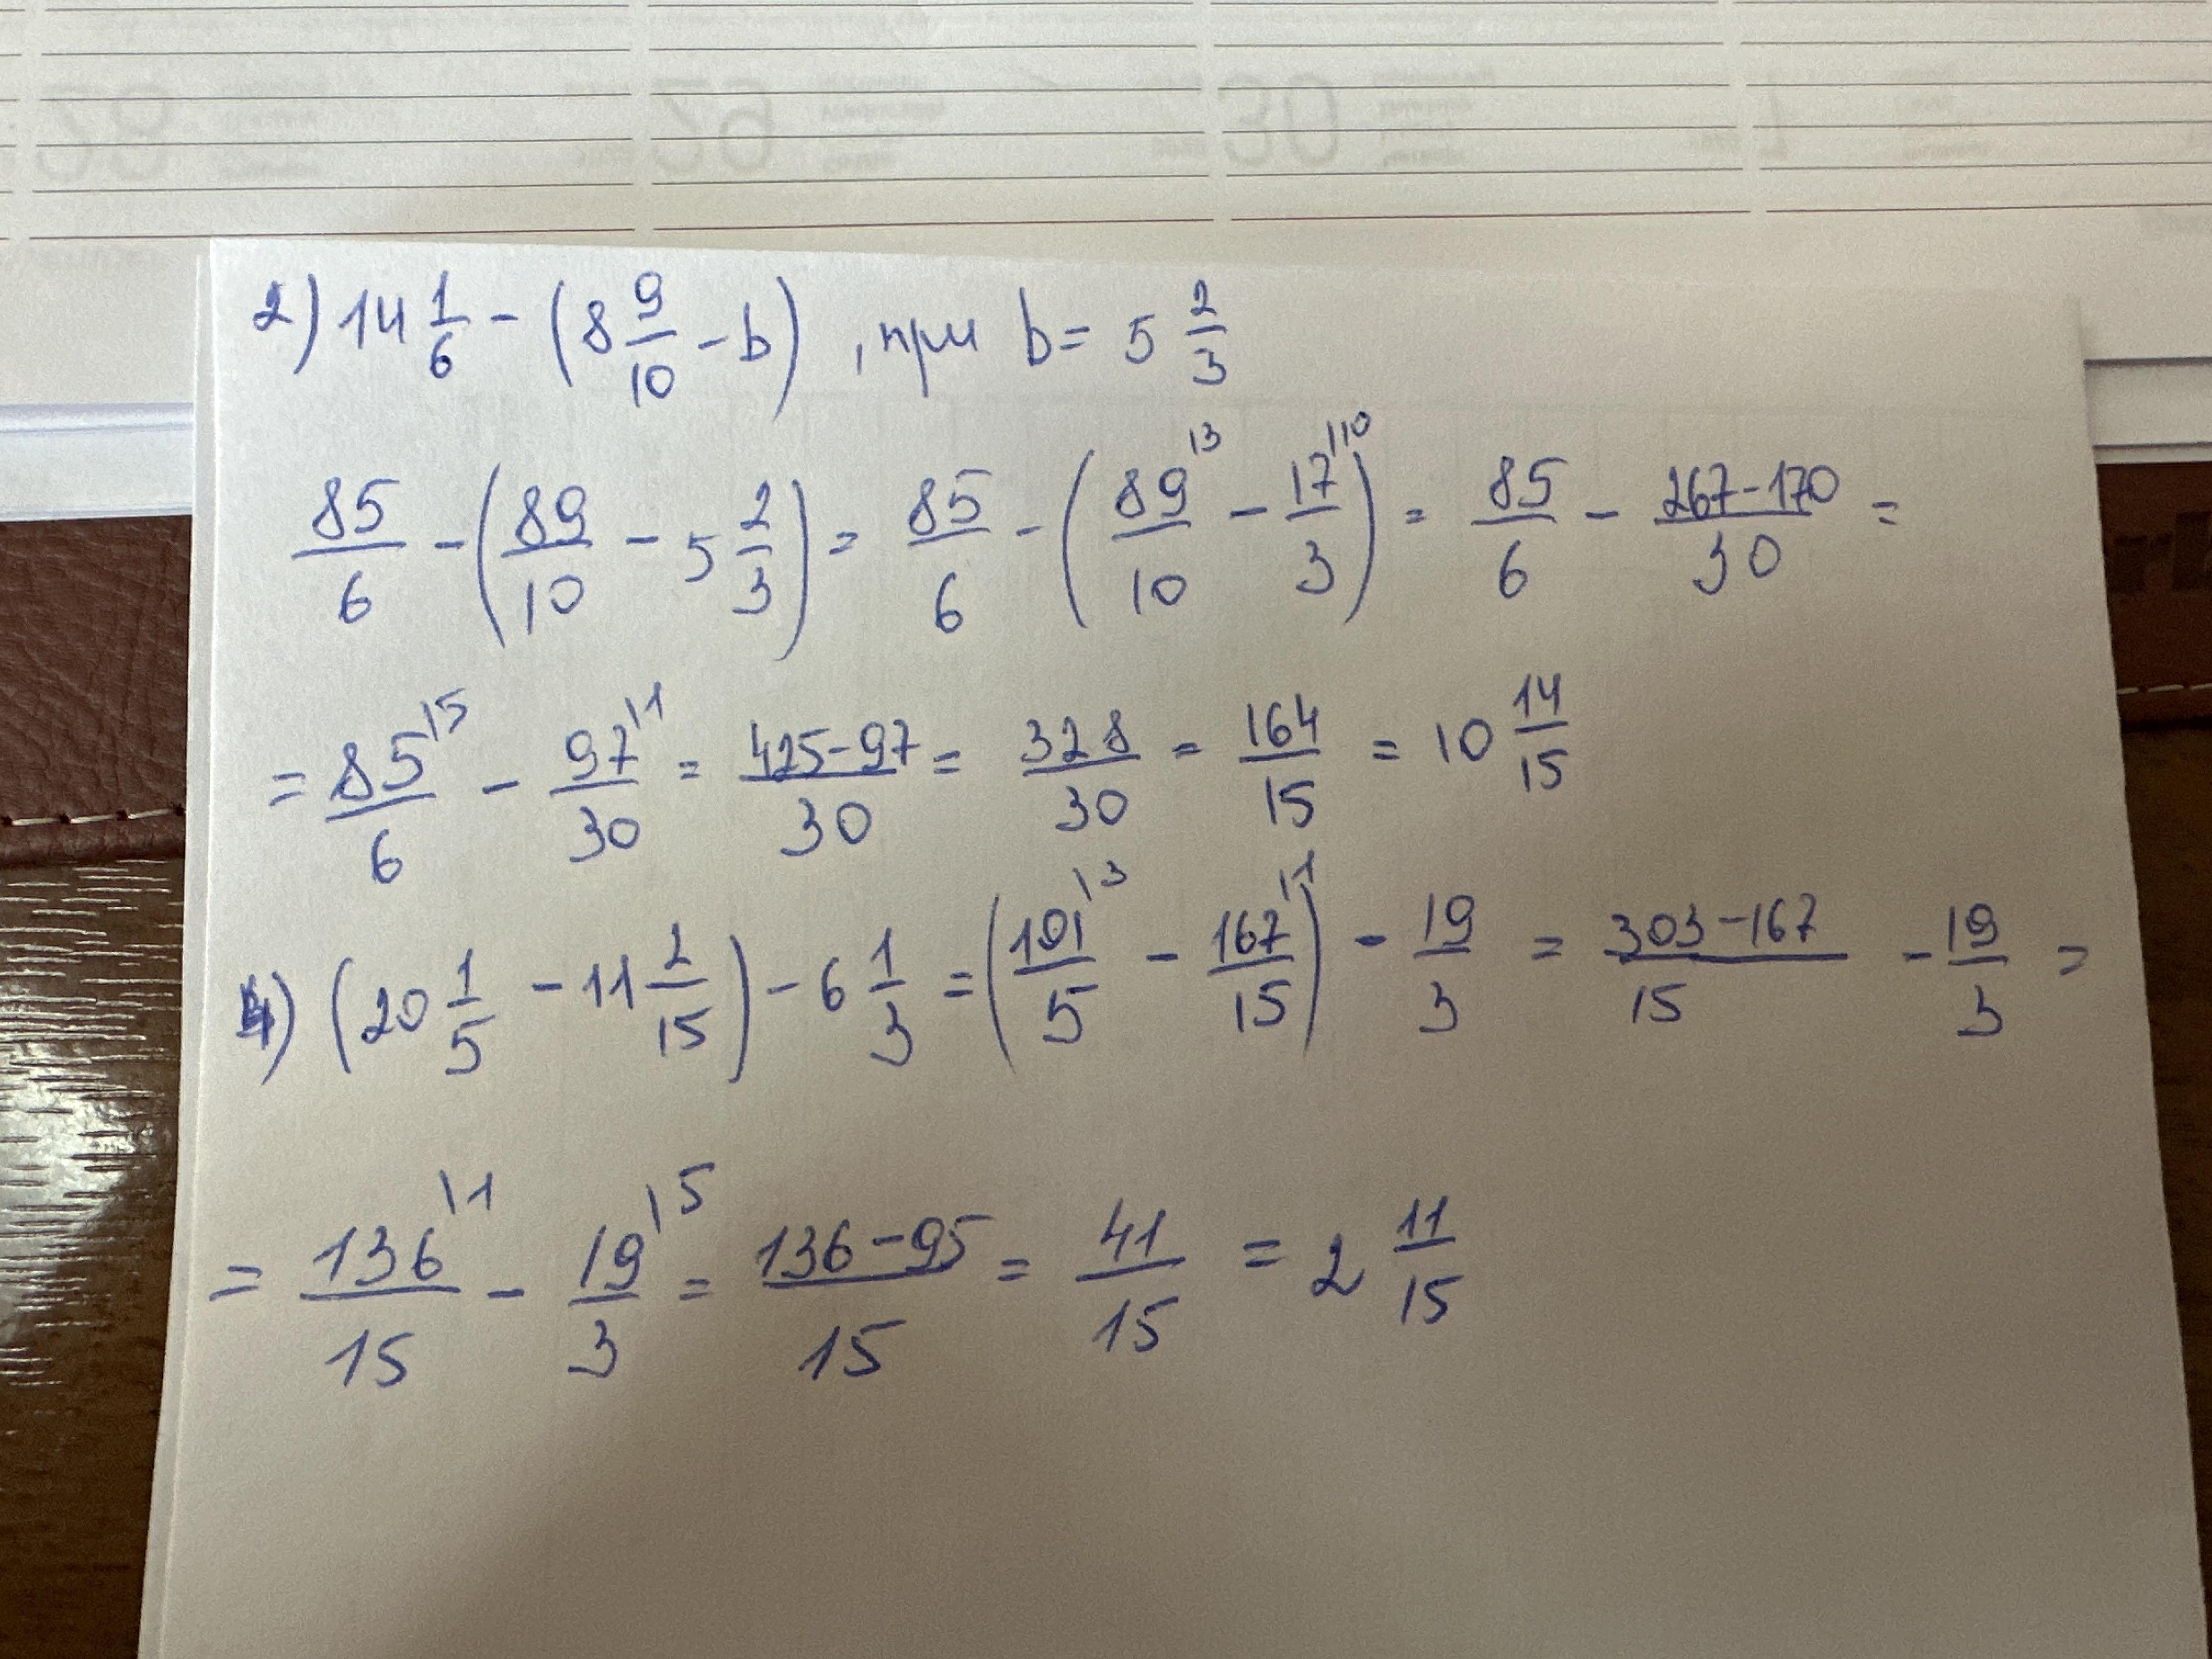 2) 14 1/6 - (8 9/10 - b) , при b = 5 2/3
85/6 - (89/10 - 5 2/3) = 85/6 - (89\3/10 - 17\10/3) = 85/6 - 267-170/30 =
= 85\5/6 - 97\1/30 = 425-97/30 = 328/30 = 164/15 = 10 14/15
4) (20 1/5 - 11 2/15) - 6 1/3 = (101\3/5 - 167\1/15) - 19/3 = 303-167/15 - 19/3 =
= 136\1/15 - 19\5/3 = 136-95/15 = 41/15 = 2 11/15